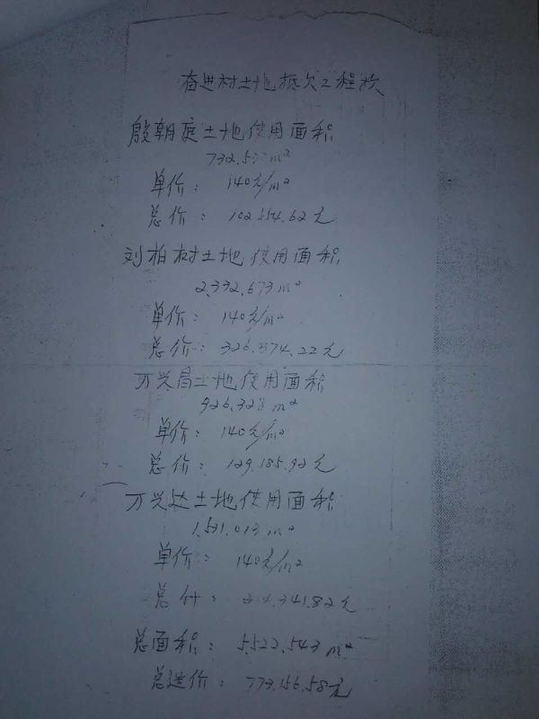 奋进村土地抵欠工程款
殷朝庭土地使用面积
732.533m²
单价: 140元/m²
总价: 102554.62元
刘柏树土地使用面积
2.332.673m²
单价: 140元/m²
总价: 326.574.22元
万兴昌土地使用面积
926.328m²
单价: 140元/m²
总价: 129.685.92元
万兴达土地使用面积
1.531.013m²
单价: 140元/m²
总价: 214.341.82元
总面积: 5.522.543m²
总造价: 773.156.58元